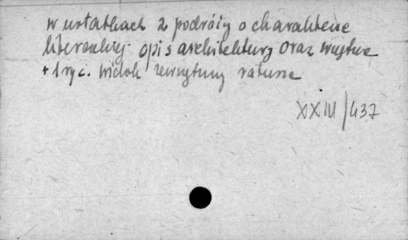 w notatkach z podróży o charakterze
literackiej. opis architektury oraz wnętrze
+ 1 ryc. widok zewnętrzny ratusza
XXIII/437